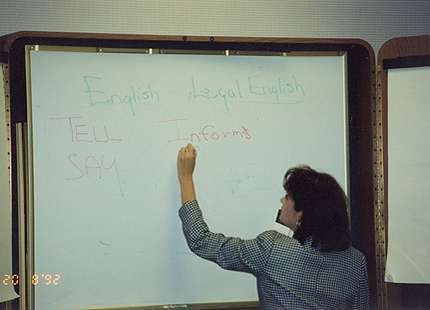 English Legal English
TELL Informs
SAY
20 8'92